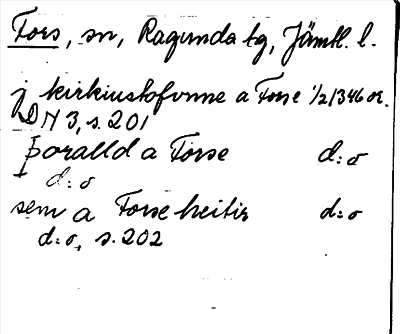 Fors, sn, Ragunda tg, Jämtl. l.
j kirkiustofvnne a Forse 1/2 1346 or.
DN 3, s. 201
Þoralld a Forse d:o
d:o
sem a Forse heitir d:o
d:o, s. 202